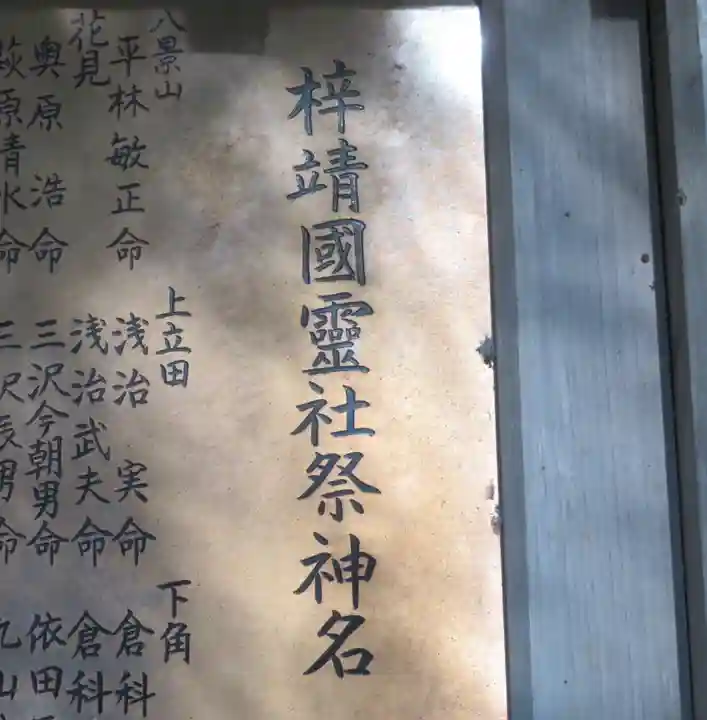 梓靖國靈社祭神名
八景山
平林敏正命
花見
奥原 浩命
萩原清水命
上立田
浅治 実命
浅治武夫命
三沢今朝男命
三沢辰男命
下角
倉科
倉科
依田
丸山